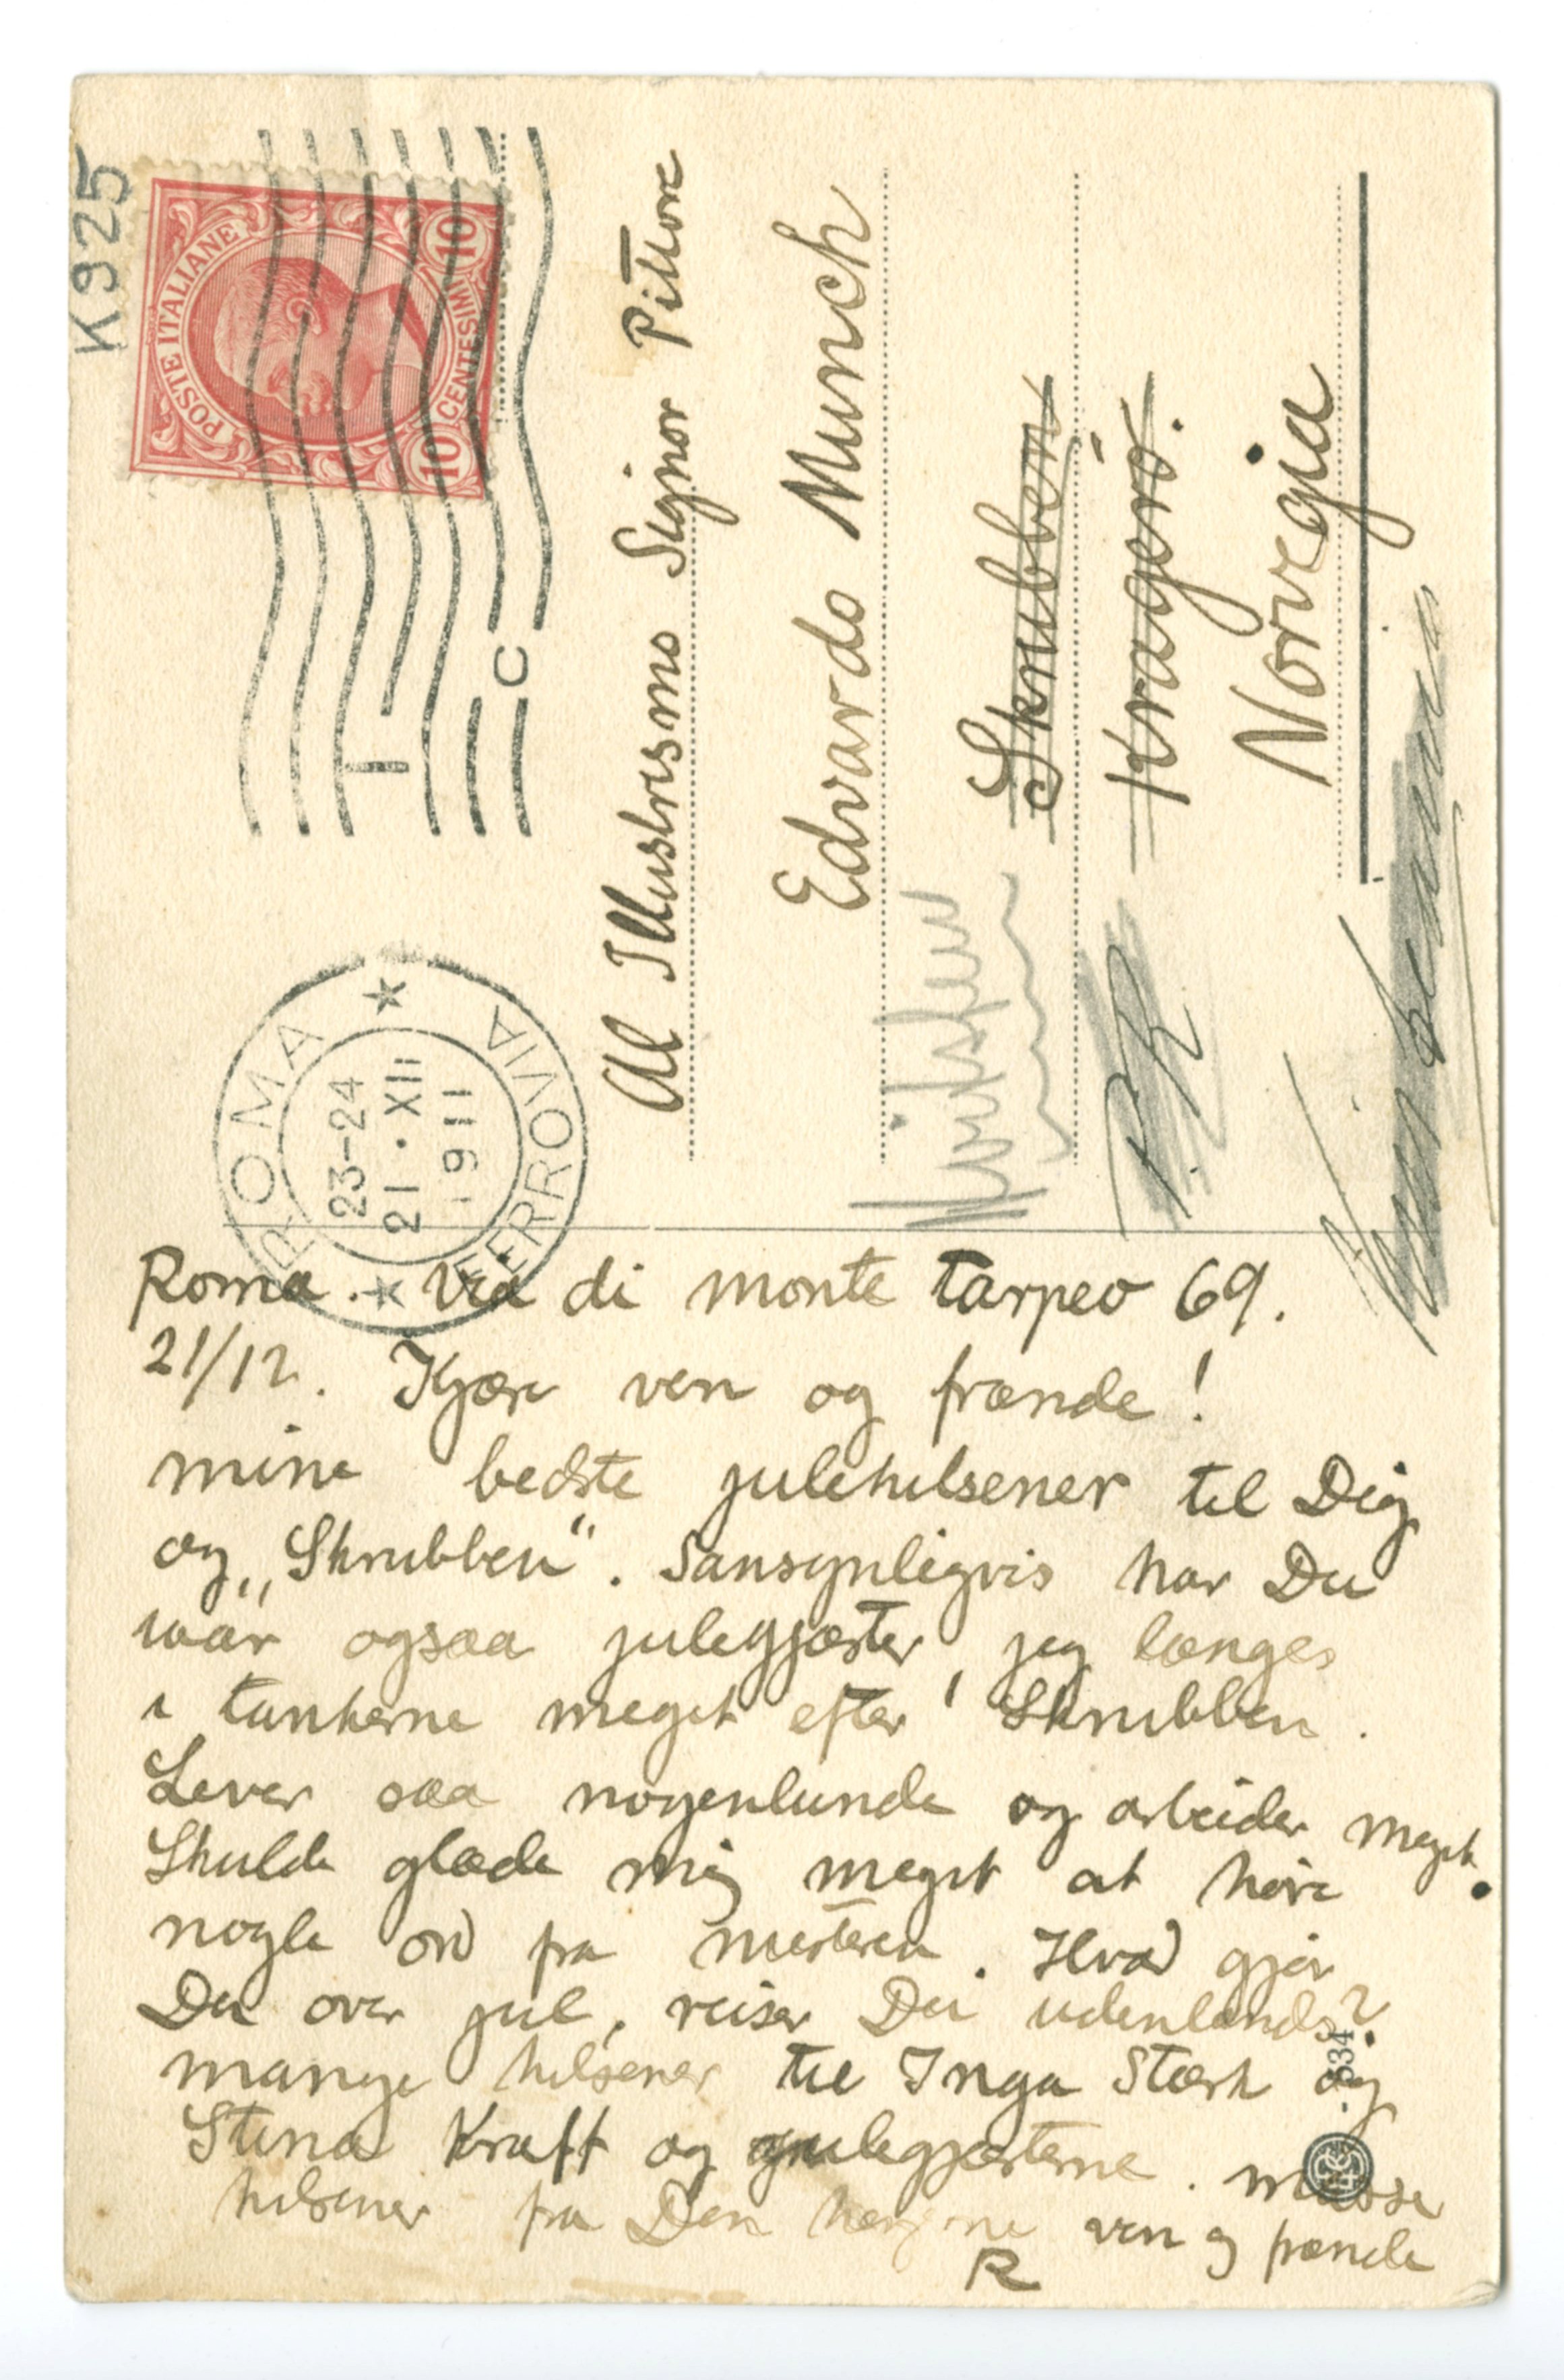 K 925
POSTE ITALIANE
10 CENTESIMI 10
T C
ROMA FERROVIA
23-24
21 · XII
1911
Al Illustrismo Signor Pittore
Edvardo Munch
Skrubben
Kragerö.
Norvegia
Hvitsten
Roma. Via di monte tarpeo 69.
21/12. Kjære ven og frænde!
mine bedste julehilsener til Dig
og „Skrubben“. Sansynligvis har Du
iaar ogsaa julegjæster, jeg længes
i tankerne meget efter Skrubben.
Lever saa nogenlunde og arbeider meget.
Skulde glæde mig meget at høre
nogle ord fra mesteren. Hvad gjør
Du over jul, reiser Du udenlands?
mange hilsener til Inga Stærk og
Stina Kraft og julegjæsterne. masse
hilsener fra Den ven og frænde
R
634